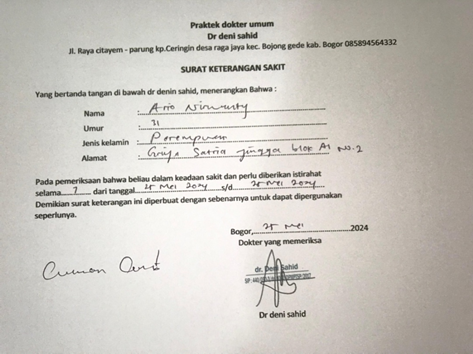 Praktek dokter umum
Dr deni sahid
Jl. Raya citayem - parung kp.Ceringin desa raga jaya kec. Bojong gede kab. Bogor 085894564332
SURAT KETERANGAN SAKIT
Yang bertanda tangan di bawah dr denin sahid, menerangkan Bahwa :
Nama :
Umur : 31
Jenis kelamin : Perempuan
Alamat : Griya Satria jingga blok A1 No-2
Pada pemeriksaan bahwa beliau dalam keadaan sakit dan perlu diberikan istirahat
selama 7 dari tanggal 25 Mei 2024 s/d 25 Mei 2024
Demikian surat keterangan ini diperbuat dengan sebenarnya untuk dapat dipergunakan
seperlunya.
Bogor, 25 Mei 2024
Dokter yang memeriksa
dr. Deni Sahid
Dr deni sahid